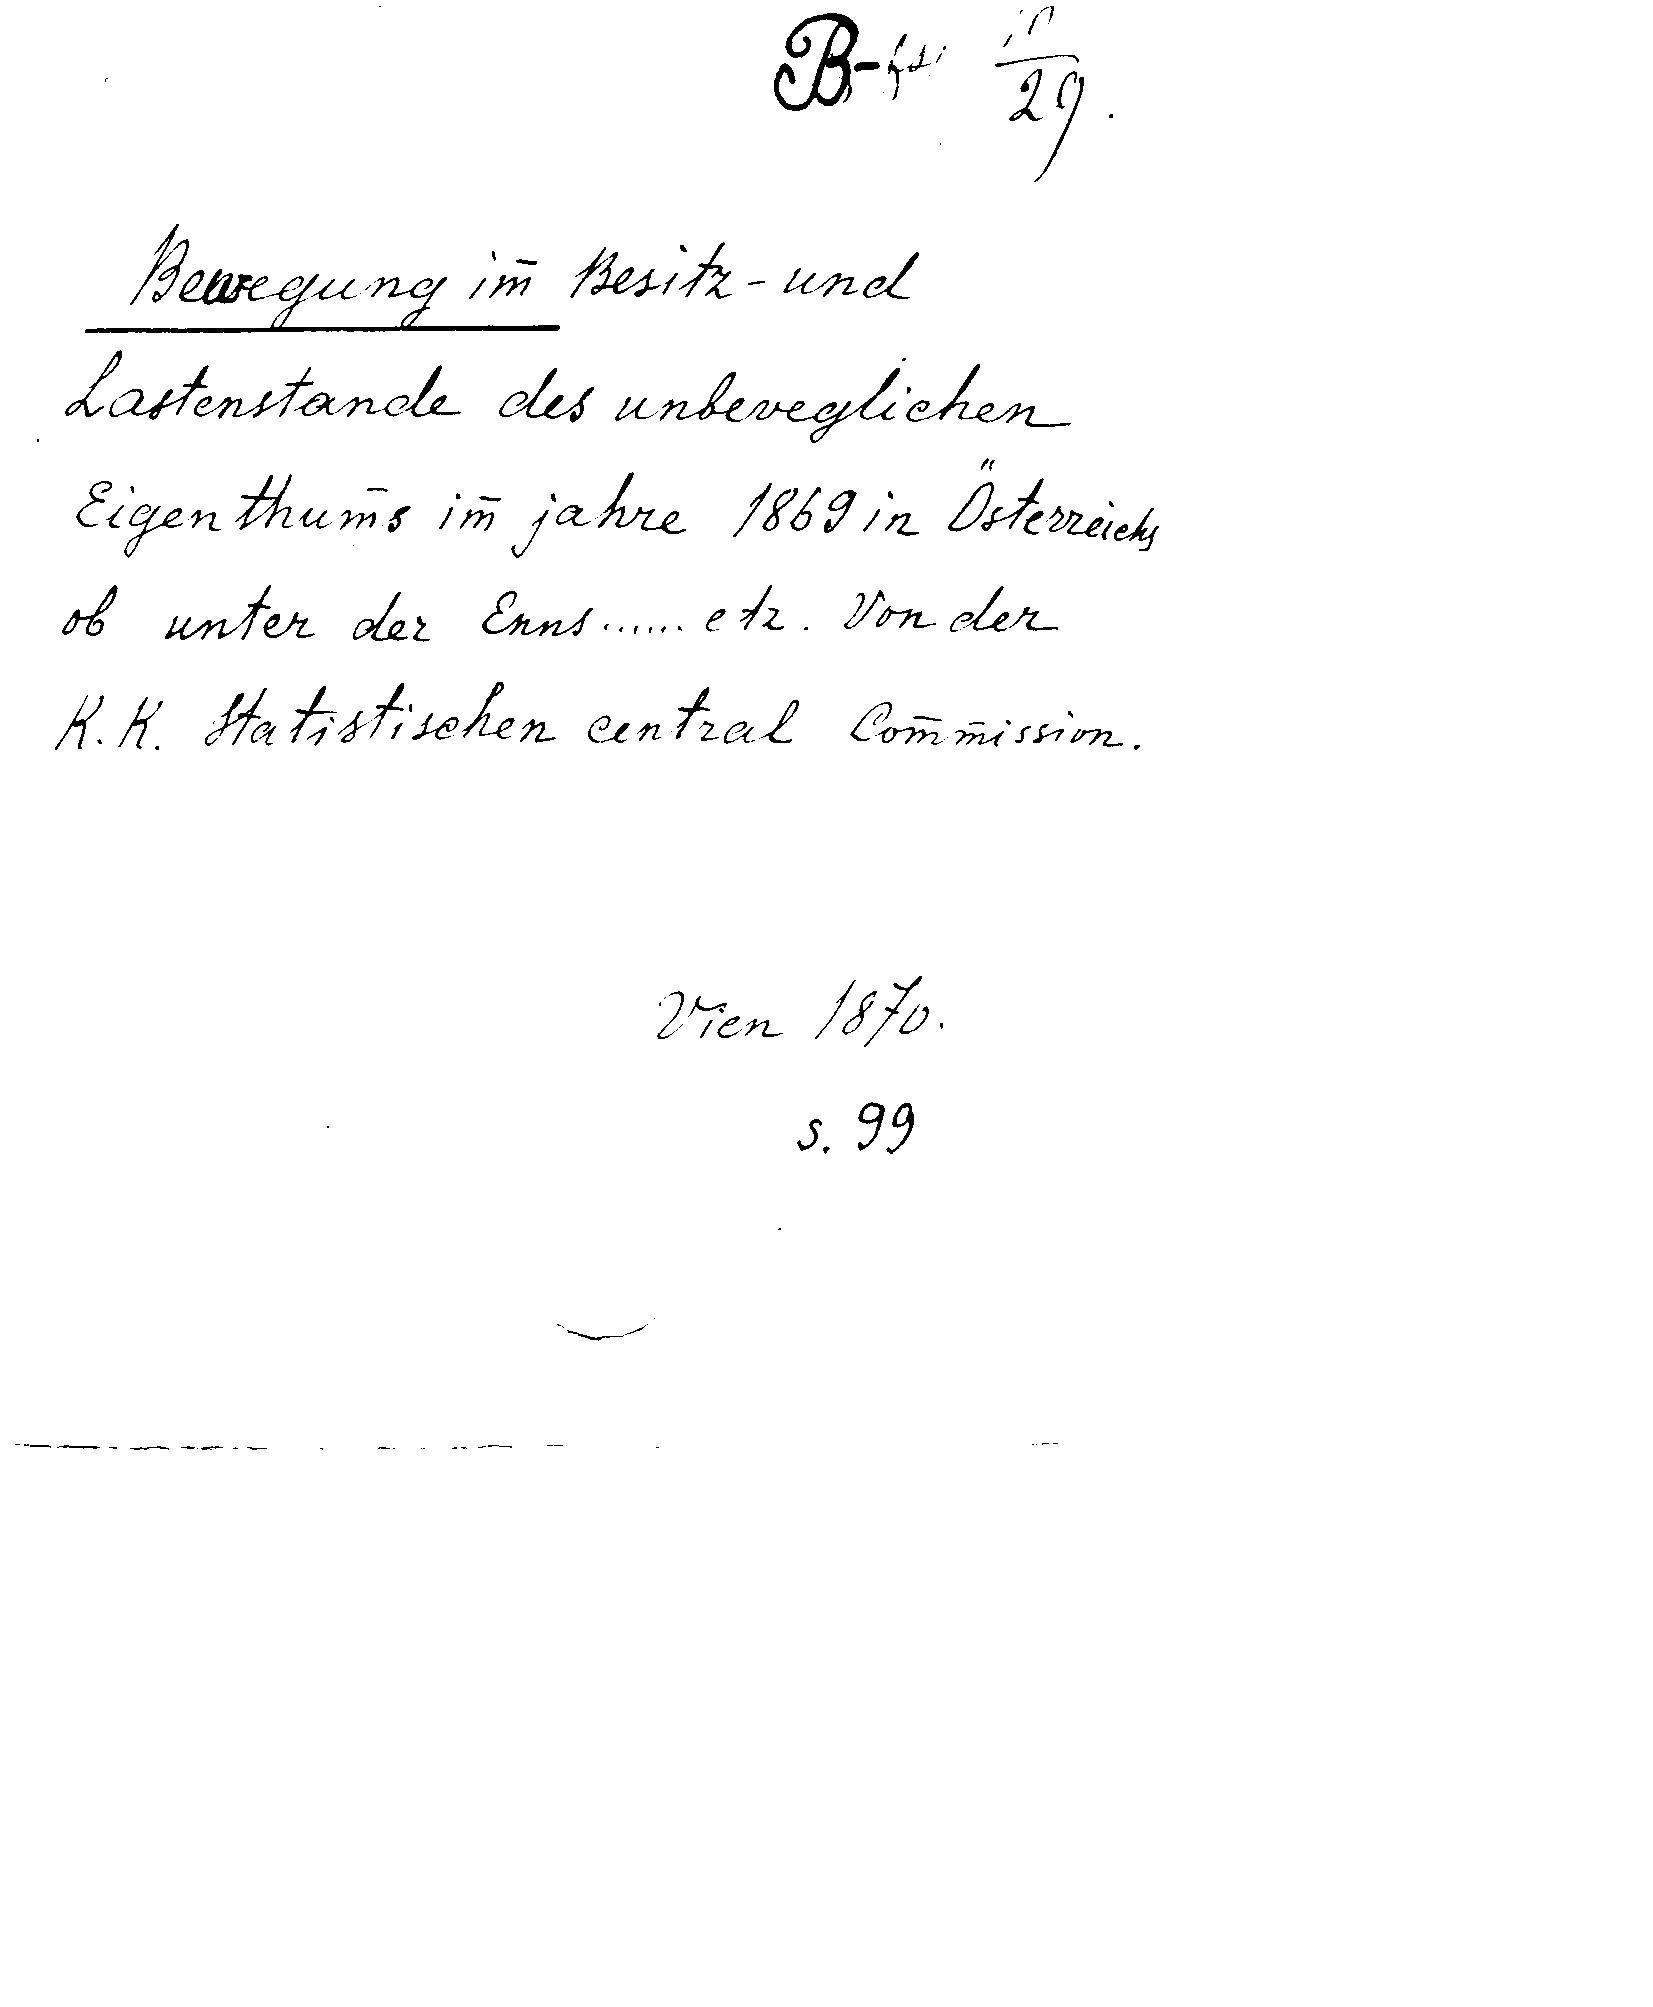 B- 29.
Bewegung im̄ Besitz - und
Lastenstande des unbeveglichen
Eigenthum̄s im̄ jahre 1869 in Österreichs
ob unter der Enns...... etz. Von der
K. K. Statistischen central Com̄m̄ission.
Vien 1870.
s. 99